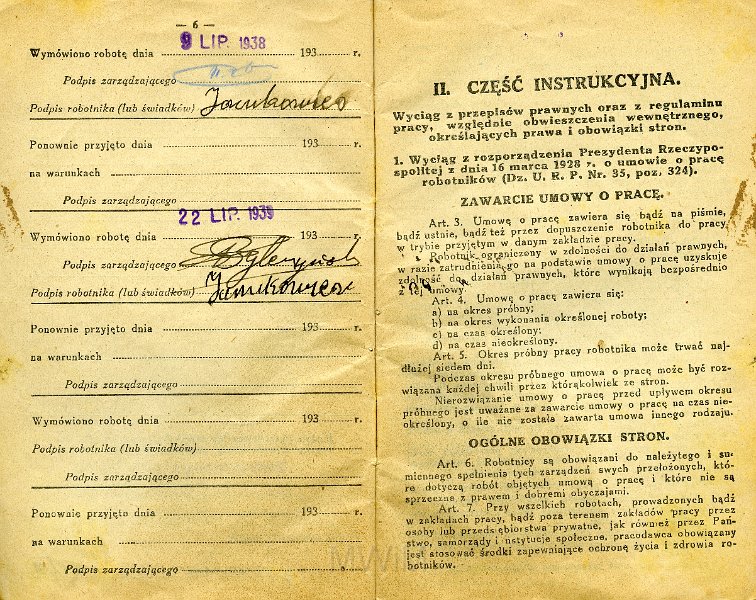 — 6 —
9 LIP. 1938
Wymówiono robotę dnia 193 r.
Podpis zarządzającego
Podpis robotnika (lub świadków)
Ponownie przyjęto dnia 193 r.
na warunkach
Podpis zarządzającego
22 LIP. 1939
Wymówiono robotę dnia 193 r.
Podpis zarządzającego
Podpis robotnika (lub świadków)
Ponownie przyjęto dnia 193 r.
na warunkach
Podpis zarządzającego
Wymówiono robotę dnia 193 r.
Podpis robotnika (lub świadków)
Podpis zarządzającego
Ponownie przyjęto dnia 193 r.
na warunkach
Podpis zarządzającego
II. CZĘŚĆ INSTRUKCYJNA.
Wyciąg z przepisów prawnych oraz z regulaminu
pracy, względnie obwieszczenia wewnętrznego,
określających prawa i obowiązki stron.
1. Wyciąg z rozporządzenia Prezydenta Rzeczypo-
spolitej z dnia 16 marca 1928 r. o umowie o pracę
robotników (Dz. U. R. P. Nr. 35, poz. 324).
ZAWARCIE UMOWY O PRACĘ.
Art. 3. Umowę o pracę zawiera się bądź na piśmie,
bądź ustnie, bądź też przez dopuszczenie robotnika do pracy
w trybie przyjętym w danym zakładzie pracy.
Robotnik ograniczony w zdolności do działań prawnych,
w razie zatrudnienia go na podstawie umowy o pracę uzyskuje
zdolność do działań prawnych, które wynikają bezpośrednio
z tej umowy.
Art. 4. Umowę o pracę zawiera się:
a) na okres próbny;
b) na okres wykonania określonej roboty;
c) na czas określony;
d) na czas nieokreślony.
Art. 5. Okres próbny pracy robotnika może trwać naj-
dłużej siedem dni.
Podczas okresu próbnego umowa o pracę może być roz-
wiązana każdej chwili przez którąkolwiek ze stron.
Nierozwiązanie umowy o pracę przed upływem okresu
próbnego jest uważane za zawarcie umowy o pracę na czas nie-
określony, o ile nie została zawarta umowa innego rodzaju.
OGÓLNE OBOWIĄZKI STRON.
Art. 6. Robotnicy są obowiązani do należytego i su-
miennego spełnienia tych zarządzeń swych przełożonych, któ-
re dotyczą robót objętych umową o pracę i które nie są
sprzeczne z prawem i dobremi obyczajami.
Art. 7. Przy wszelkich robotach, prowadzonych bądź
w zakładach pracy, bądź poza terenem zakładów pracy przez
osoby lub przedsiębiorstwa prywatne, jak również przez Pań-
stwo, samorządy i instytucje społeczne, pracodawca obowiązany
jest stosować środki zapewniające ochronę życia i zdrowia ro-
botników.